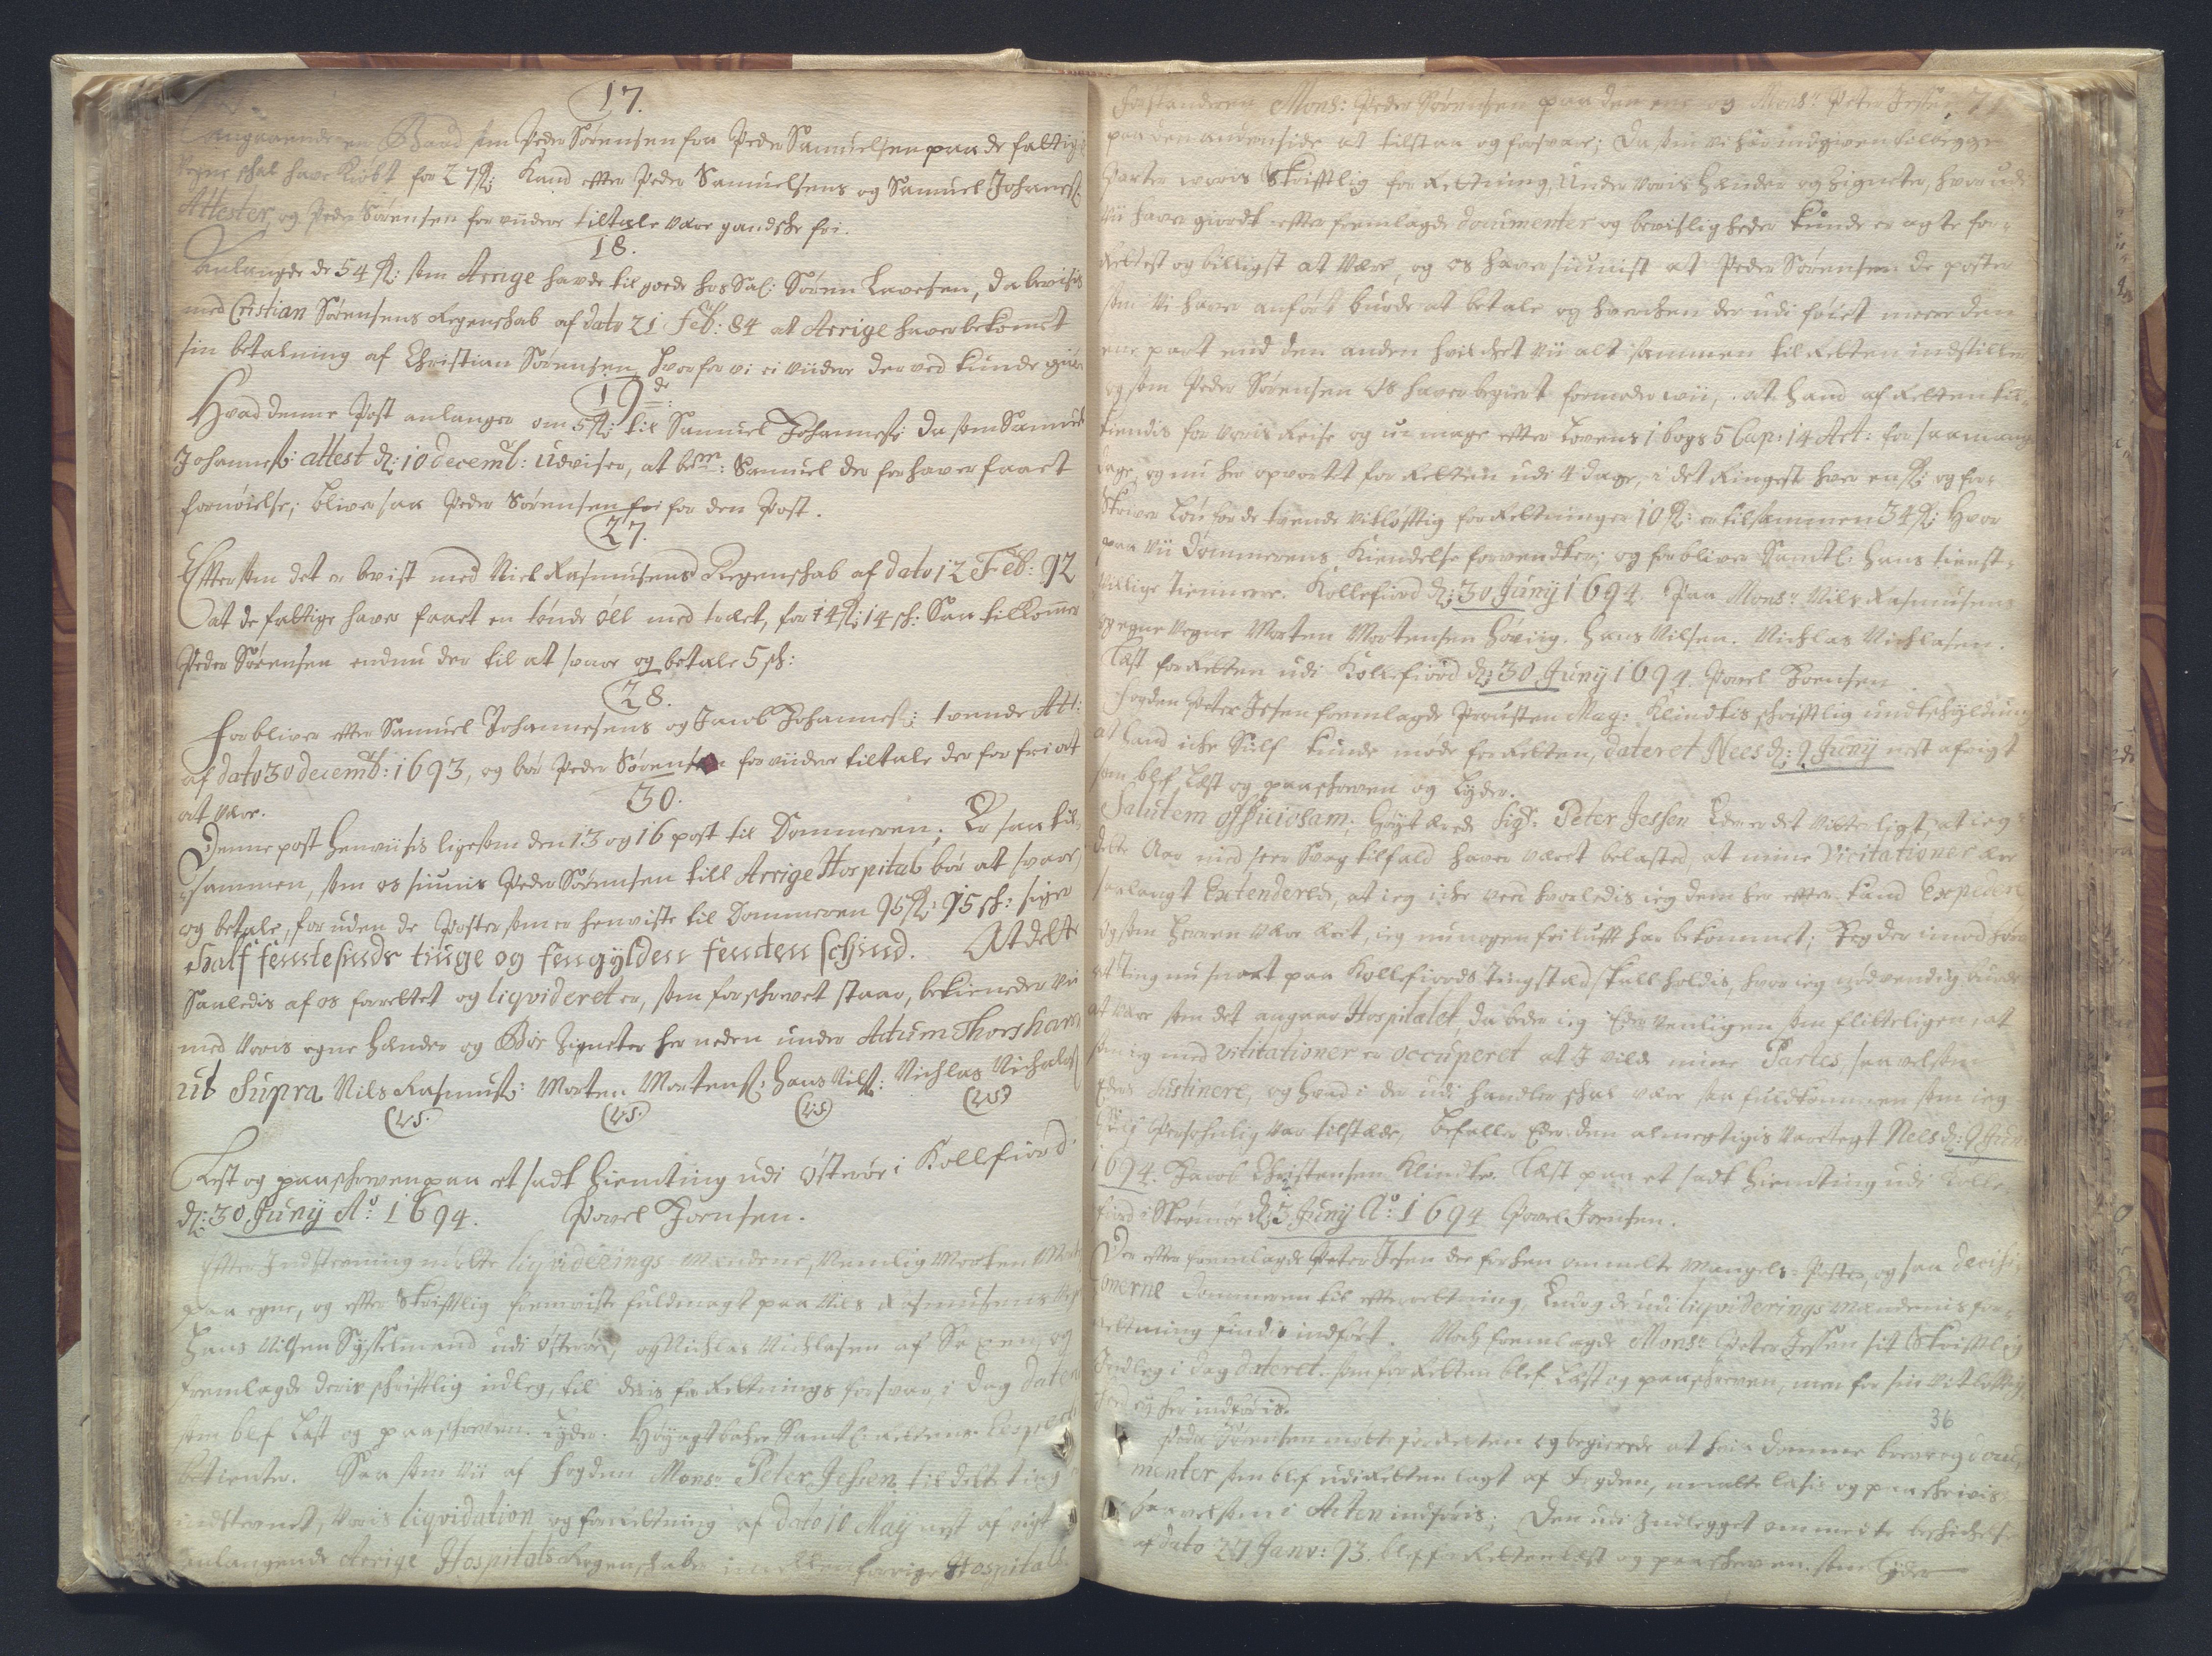 17.
angaaende en Baad som Peder Sørensen fra Peder Samuelsen paa de fattigis
vegne schal have kiøbt for 27 ꝶ: Kand efter Peder Samuelsens og Samuel Johanneß:
Attester, og Peder Sørensen for viidere tiltale være gandsche fri.
18.
Anlangde de 54 ꝶ: som Arrige havde til gode hos Sal: Søren Lavesen, da bevisis
med Cristian Sørensens Regenschab af dato 21 Feb: 84 at Arrige haver bekomet
sin betalning af Christian Sørensen, hvorfor vi ei viidere derved kunde giøre
19de:
Hvad denne Post anlanger om 5 ꝶ: til Samuel Johanneß: da som Samuel
Johanneß: attest d: 10 decemb: udviser, at bem: Samuel der for haver faaet
fornøielse; bliver saa Peder Sørensen fri for den Post.
27.
Efftersom det er bevist med Niels Rasmusens Regenschab af dato 12 Feb: 92
at de fattige haver faaet en tønde øll med træet, for 4 ꝶ: 14 sch: Saa tilkommer
Peder Sørensen endnu der til at svare og betale 5 sch:
28.
Forbliver efter Samuel Johannesens og Jacob Johanneß: tvende Att:
af dato 30 decemb: 1693, og bør Peder Sørensen for viidere tiltale der for fri at
at være.
30.
Denne post henviisis ligesom den 13 og 16 post til Dommeren; Er saa til-
sammen, som os siunis Peder Sørensen till Arrige Hospital bør at svare,
og betale, foruden de Poster som er henviste til Dommeren 95 ꝶ: 15 sch: siger
Half femtesinds tiuge og fem gylden femten schind. At dette
Saaledis af os forrettet og liqvideret er, som forschrevet staar, bekiender vii
med voris egne hænder og Zigneter her neden under Actum Thorshavn
ut Supra Nils Rasmuß: Morten Mortenß: Hans Nilß: Nichlas Nichlaß
(LS.) (LS.) (LS) (LS)
Lest og paaschreven paa et sadt hiemting udi Østerøe i Kollefiord
d: 30 Juny Ao: 1694. Povel Joensen.
Efter Indstevning møtte liqviderings-mændene, Nemlig Morten Mort
paa egne, og efter Skrifftlig fremviste fuldmagt paa Nils Rasmusens Veg
Hans Nilsen Sysselmand udi Østerøe, og Nichlas Nichlasen af Saxen, og
fremlagde deris schriftlig indleg, til deris forrettnings forsvar, i dag dateret
som blef Læst og paaschreven. Lyder. Høyagtbahre Samtl: Rettens Respect:
betienter. Saa som vii af fogden Mons: Peter Jessen til dette ting er
indstevnet, voris liqvidation og forrettning af dato 10 Maij nest af vigt
anlangende Arrige Hospitals Regenschaber imellem forrige Hospitals
forstanderen Mons: Peder Sørensen paa den ene og Mons: Peter Jessen 71
paa den anden side at tilstaa og forsvare; Da som vi har indgiven til begge
Parter voris Skrifftlig forrettning, Under voris hænder og Zigneter, hvorudi
vii haver giordt efter fremlagde documenter og bevisligheder kunde eragte for-
rettest og billigst at være, og os haver siunist at Peder Sørensen de poster
som vi haver anført burde at betale og hverchen der udi føiet mere den
ene part end den anden hvilchet vii alt sammen til Retten indstiller
og som Peder Sørensen os haver begiert formoder wii, at hand af Retten til-
kiendis for voris Reise og umage efter Lovens 1 bogs 5 Cap: 14 Art: for saamange
dage, og nu her opvartet for Retten udi 4 dage, i det Ringeste hver en ꝶ: og for
Skriver Løn for de tvende vitløfftig forrettninger 10 ꝶ: er tilsammen 34 ꝶ: hvor
paa vii Dommerens Kiendelse forventer; og forbliver Samtl: hans tienst-
villige tiennere. Kollefiord d: 30 Juny 1694. Paa Mons: Nils Rasmusens
og egne Vegne Morten Mortensen Høviig. Hans Nilsen. Nichlas Nichlasen.
Læst for Retten udi Kollefiord d: 30 Juny 1694. Povel Joensen
Fogden Peter Jesen fremlagde Prousten Mag: Klindtis schriftlig undschyldning
at hand iche Sielf kunde møde for Retten, dateret Nees d: 9 Juny nest afvigt
som blef Læst og paaschreven og Lyder.
Salutem officiosam; Høyt ærede Sigr: Peter Jessen Eder er det vitterligt, at ieg
dette Aar med stor Svag tilfald haver været belasted, at mine Visitationer ere
saalangt Extenderede, at ieg iche veed hvorledis ieg dem her efter kand Expedere
og som Herren være æret, ieg nu nogen fri lufft har bekommet; Og der imod hører
at Ting nu snart paa Kollefiords Tingstæd skall holdis, hvor ieg nødvendig burde
at være som det angaar Hospitalet, da beder ieg Eder venligen som flitteligen, at
som ieg med Visitationer er occuperet at I vilde mine Partes, saavelsom
Eders sustinere, og hvad i der udi handler schal være saa fuldkommen som ieg
Sielf Personlig var tilstæde, befaller Eder den almegtigis varetegt Nees d: 9 Juny
1694. Jacob Christensen Klindte. Læst paa et sadt hiemting udi Kolle-
fiord i Strømøe d: 3 Juny Ao: 1694 Povel Joensen.
Der effter fremlagde Peter Jesen der forhen ommelte Mangels-Poster, og saa decisi-
onerne Dommeren til efterretning, Endog de udi liqviderings mændenis for-
rettning findis indført. Noch fremlagde Monsr: Peter Jessen sit Skrifftlig
Indleg i dag dateret, som for Retten blef Læst og paaschreven, men for sin vitløftig
hed ey her indføris.
36
Peder Sørensen møtte for Retten og begierede at hvis domme breve og docu-
menter som blef udi Retten lagt af Fogden, maatte læsis og paaschrivis
saavelsom i Acten indføris; Den udi Indlegget ommelte beschickelse
af dato 27 Janv: 93. blef for Retten læst og paaschreven. som lyder